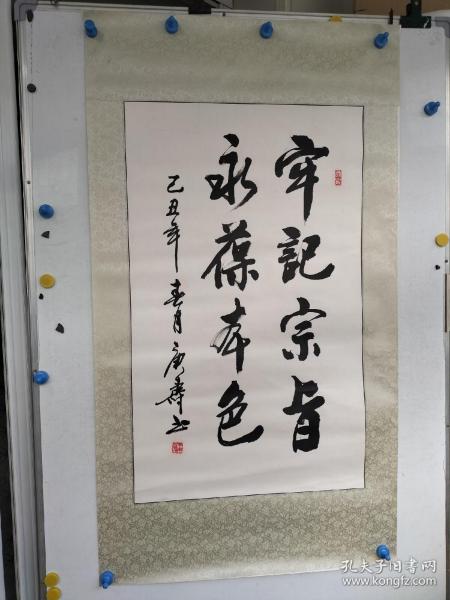 牢記宗旨
永葆本色
己丑年春月唐華书
孔夫子旧书网
www.kongfz.com